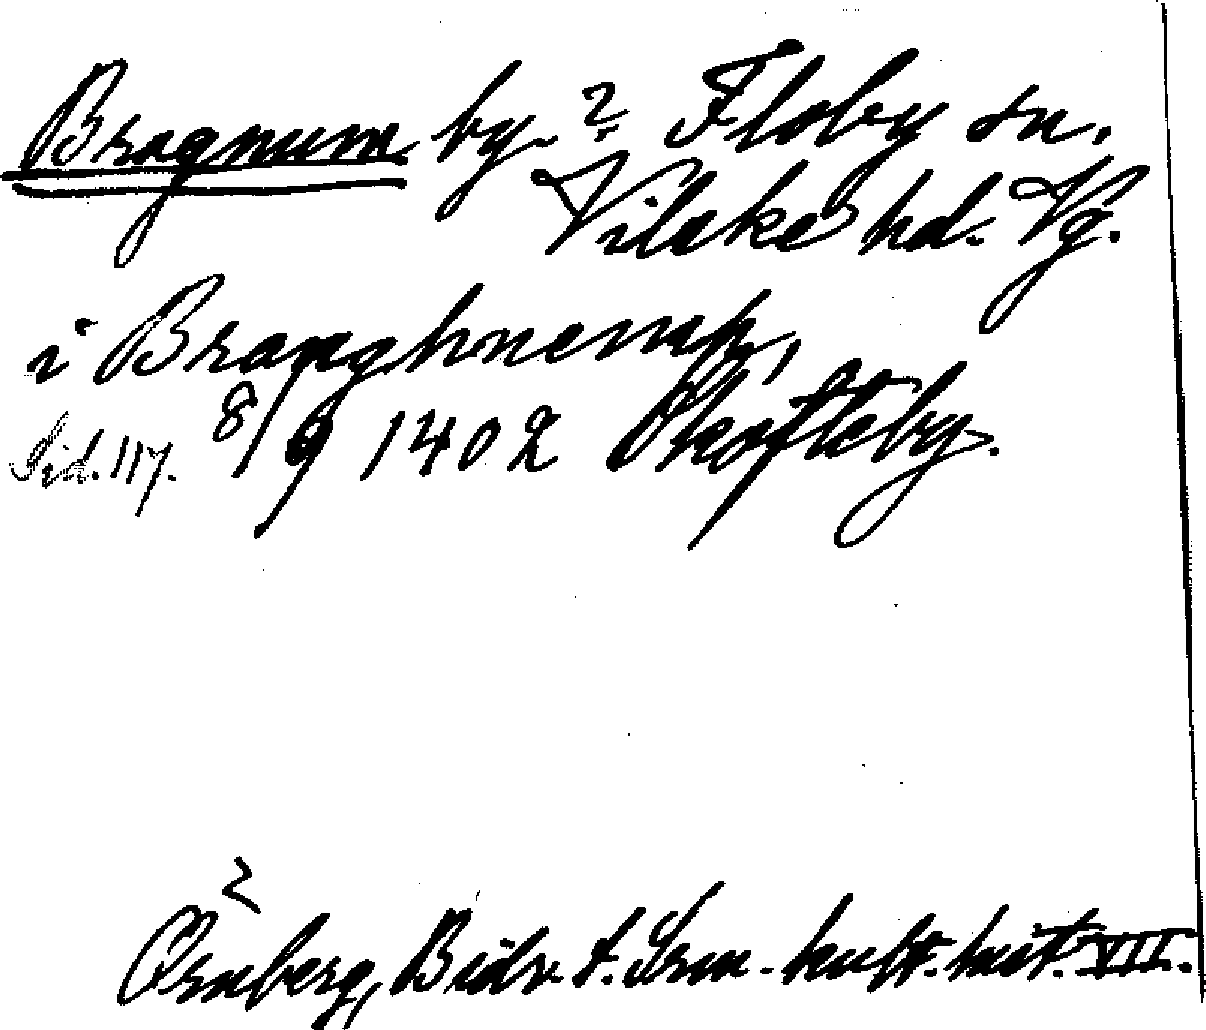 Bragnum by? Floby sn.
Vilske hd. Vg.
i Braaghnemp,
Sid. 117. 8/9 1402 Skøfteby.
Örnberg, Bidr. t. Srm. kult. hist. VII.